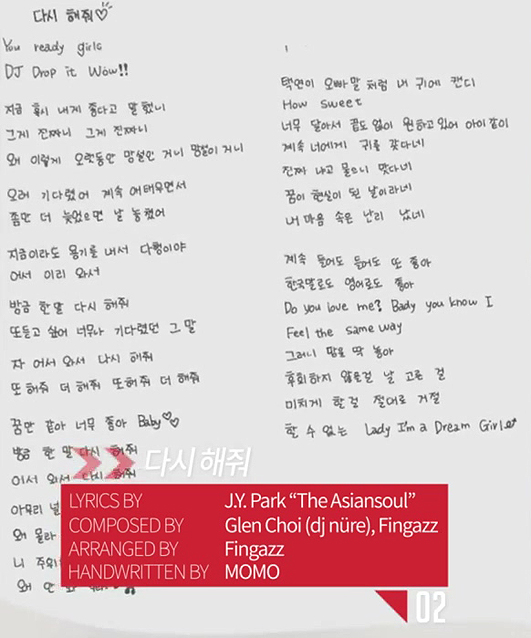 다시 해줘♡
You ready girls
DJ Drop it Wow!!
지금 혹시 내게 좋다고 말했니
그게 진짜니 그게 진짜니
왜 이렇게 오랫동안 망설인 거니 망설이 거니
오래 기다렸어 계속 애태우면서
좀만 더 늦었으면 날 놓쳤어
지금이라도 용기를 내서 다행이야
어서 이리 와서
방금 한말 다시 해줘
또듣고 싶어 너무나 기다렸던 그 말
자 어서 와서 다시 해줘
또해줘 더 해줘 또해줘 더 해줘
꿈만 같아 너무 좋아 Baby♡♡
방금 한 말 다시 해줘
어서 와서 다시 해줘
아무리 널
왜 몰라
니 주위
왜 안
택연이 오빠말 처럼 내 귀에 캔디
How sweet
너무 달아서 끝도 없이 원하고 있어 아이 같이
계속 너에게 귀를 갖다네
진짜 나고 물으니 맞다네
꿈이 현실이 된 날이라네
내 마음 속은 난리 났네
계속 들어도 들어도 또 좋아
한국말로도 영어로도 좋아
Do you love me? Bady you know I
Feel the same way
그러니 맘을 딱 놓아
후회하지 않을걸 날 고른 걸
미치게 한걸 절대로 거절
할 수 없는 Lady I'm a Dream Girl
다시 해줘
LYRICS BY J.Y. Park “The Asiansoul”
COMPOSED BY Glen Choi (dj nüre), Fingazz
ARRANGED BY Fingazz
HANDWRITTEN BY MOMO
02